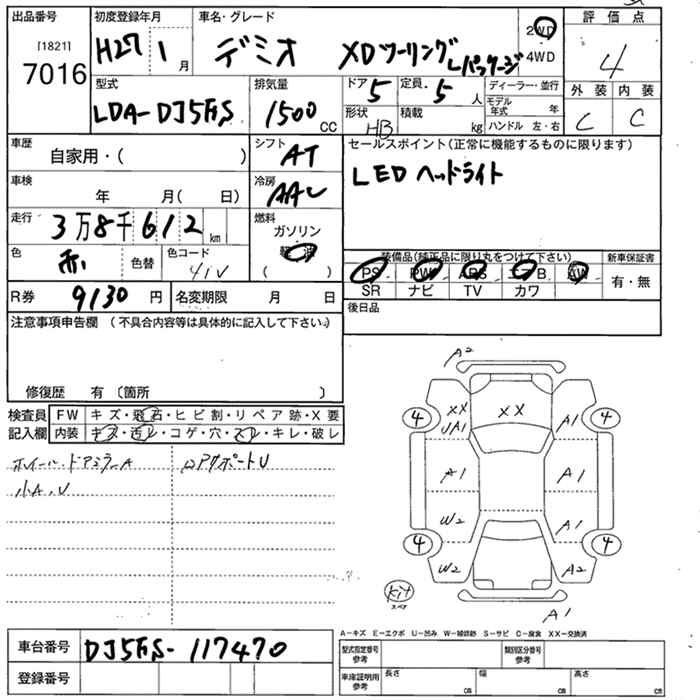 出品番号 初度登録年月 車名・グレード 評価点
[1821]
7016 H27 1 月 デミオ XDツーリング Lパッケージ 2WD 4WD 4
型式 排気量 ドア 定員 ディーラー・並行 外装 内装
LDA-DJ5FS 1500 CC 5 5 人 モデル年式 年 C C
形状 HB 積載 kg ハンドル 左・右
車歴 自家用・( ) シフト AT セールスポイント(正常に機能するものに限ります)
LEDヘッドライト
車検 年 月( 日) 冷房 AAC
走行 3万8千612 km 燃料 ガソリン
軽油
( )
色 赤 色替 色コード 41V
装備品(純正品に限り丸をつけて下さい) 新車保証書
PS PW ABS エアB AW 有・無
SR ナビ TV カワ
R券 9130 円 名変期限 月 日 後日品
注意事項申告欄 (不具合内容等は具体的に記入して下さい。)
修復歴 有 〔箇所 〕
検査員 FW キズ・飛石・ヒビ割・リペア跡・X要
記入欄 内装 キズ・汚レ・コゲ・穴・スレ・キレ・破レ
ホイール、ドアミラーA ロアサポートU
小A、U
A2
XX XX A1
UA1
4 4
A1 A1
W2 A1
4 4
W2 A2
A1
kit
スペア
A-キズ E-エクボ U-凹み W-補修跡 S-サビ C-腐食 XX-交換済
車台番号 DJ5FS-117470 型式指定番号 参考 類別区分番号 参考
登録番号 車庫証明用 参考 長さ cm 幅 cm 高さ cm